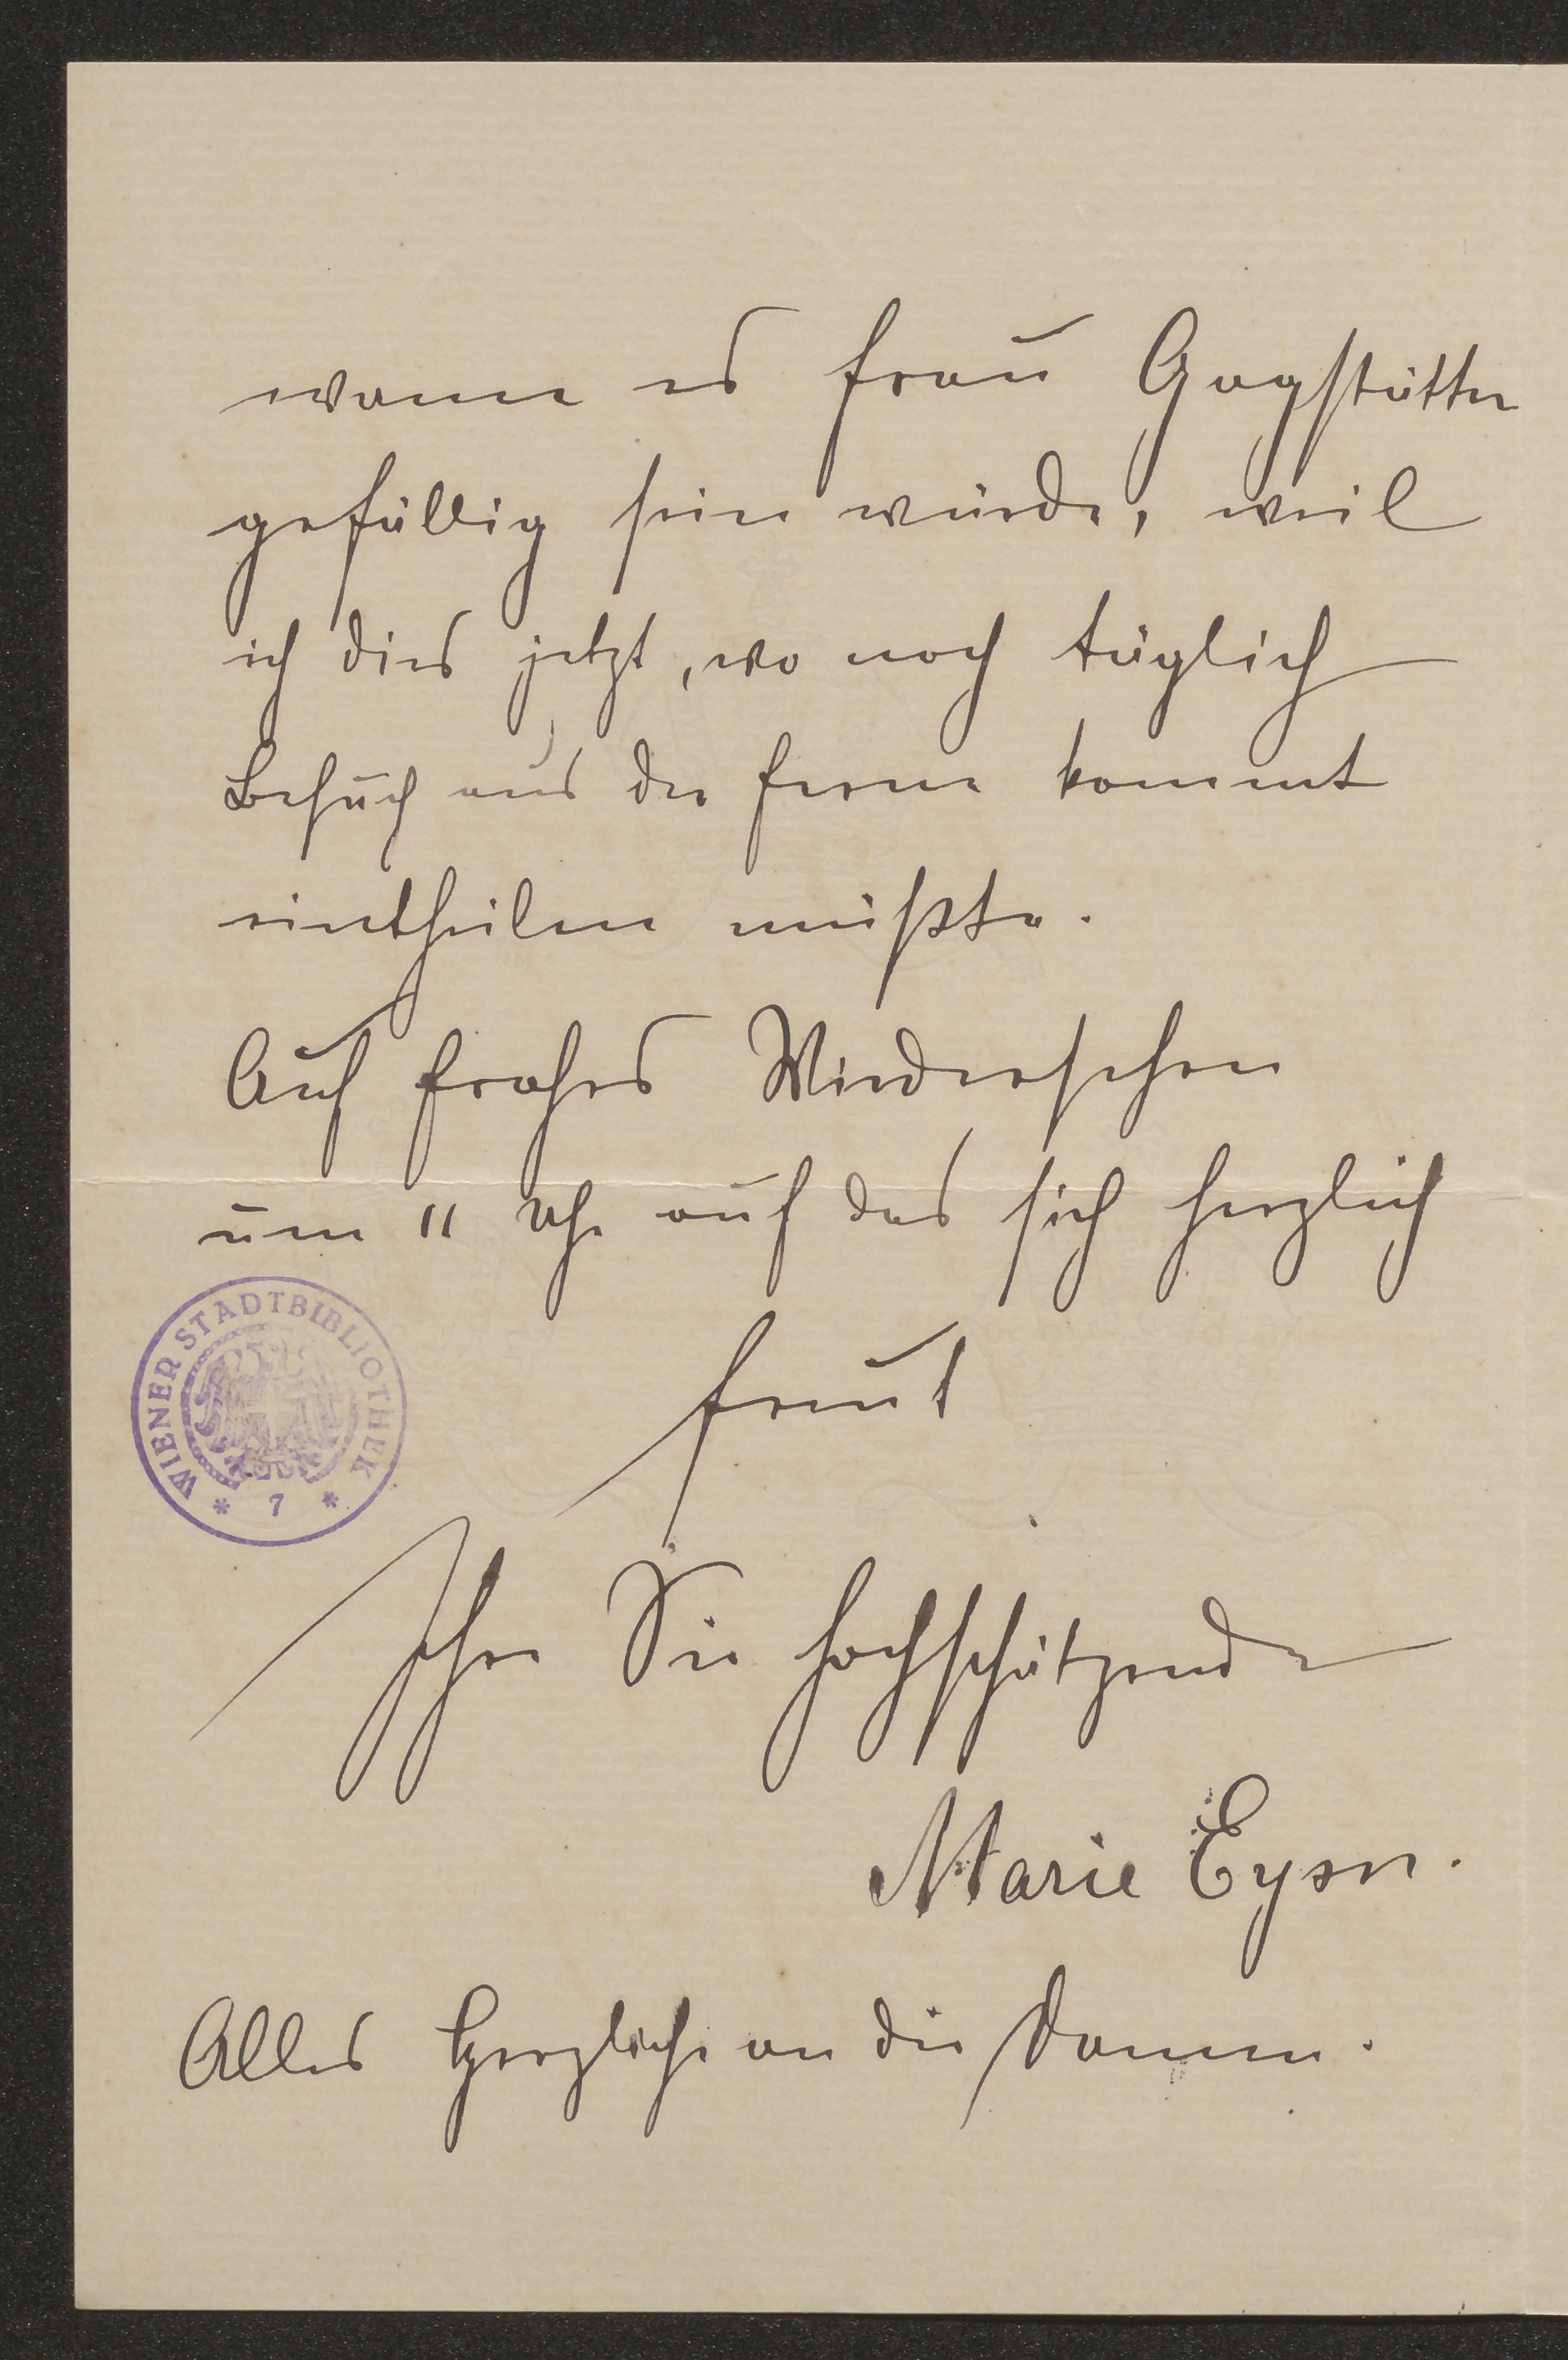 wann es Frau Gagstätter
gefällig sein würde, weil
ich dies jetzt, wo noch täglich
Besuch aus der Ferne kommt
eintheilen müßte.
Auf frohes Wiedersehen
um 11 Uhr auf das sich herzlich
freut
Ihre Sie hochschätzende
Marie Eysn.
Alles Herzliche an die Damen.
WIENER STADTBIBLIOTHEK
* 7 *